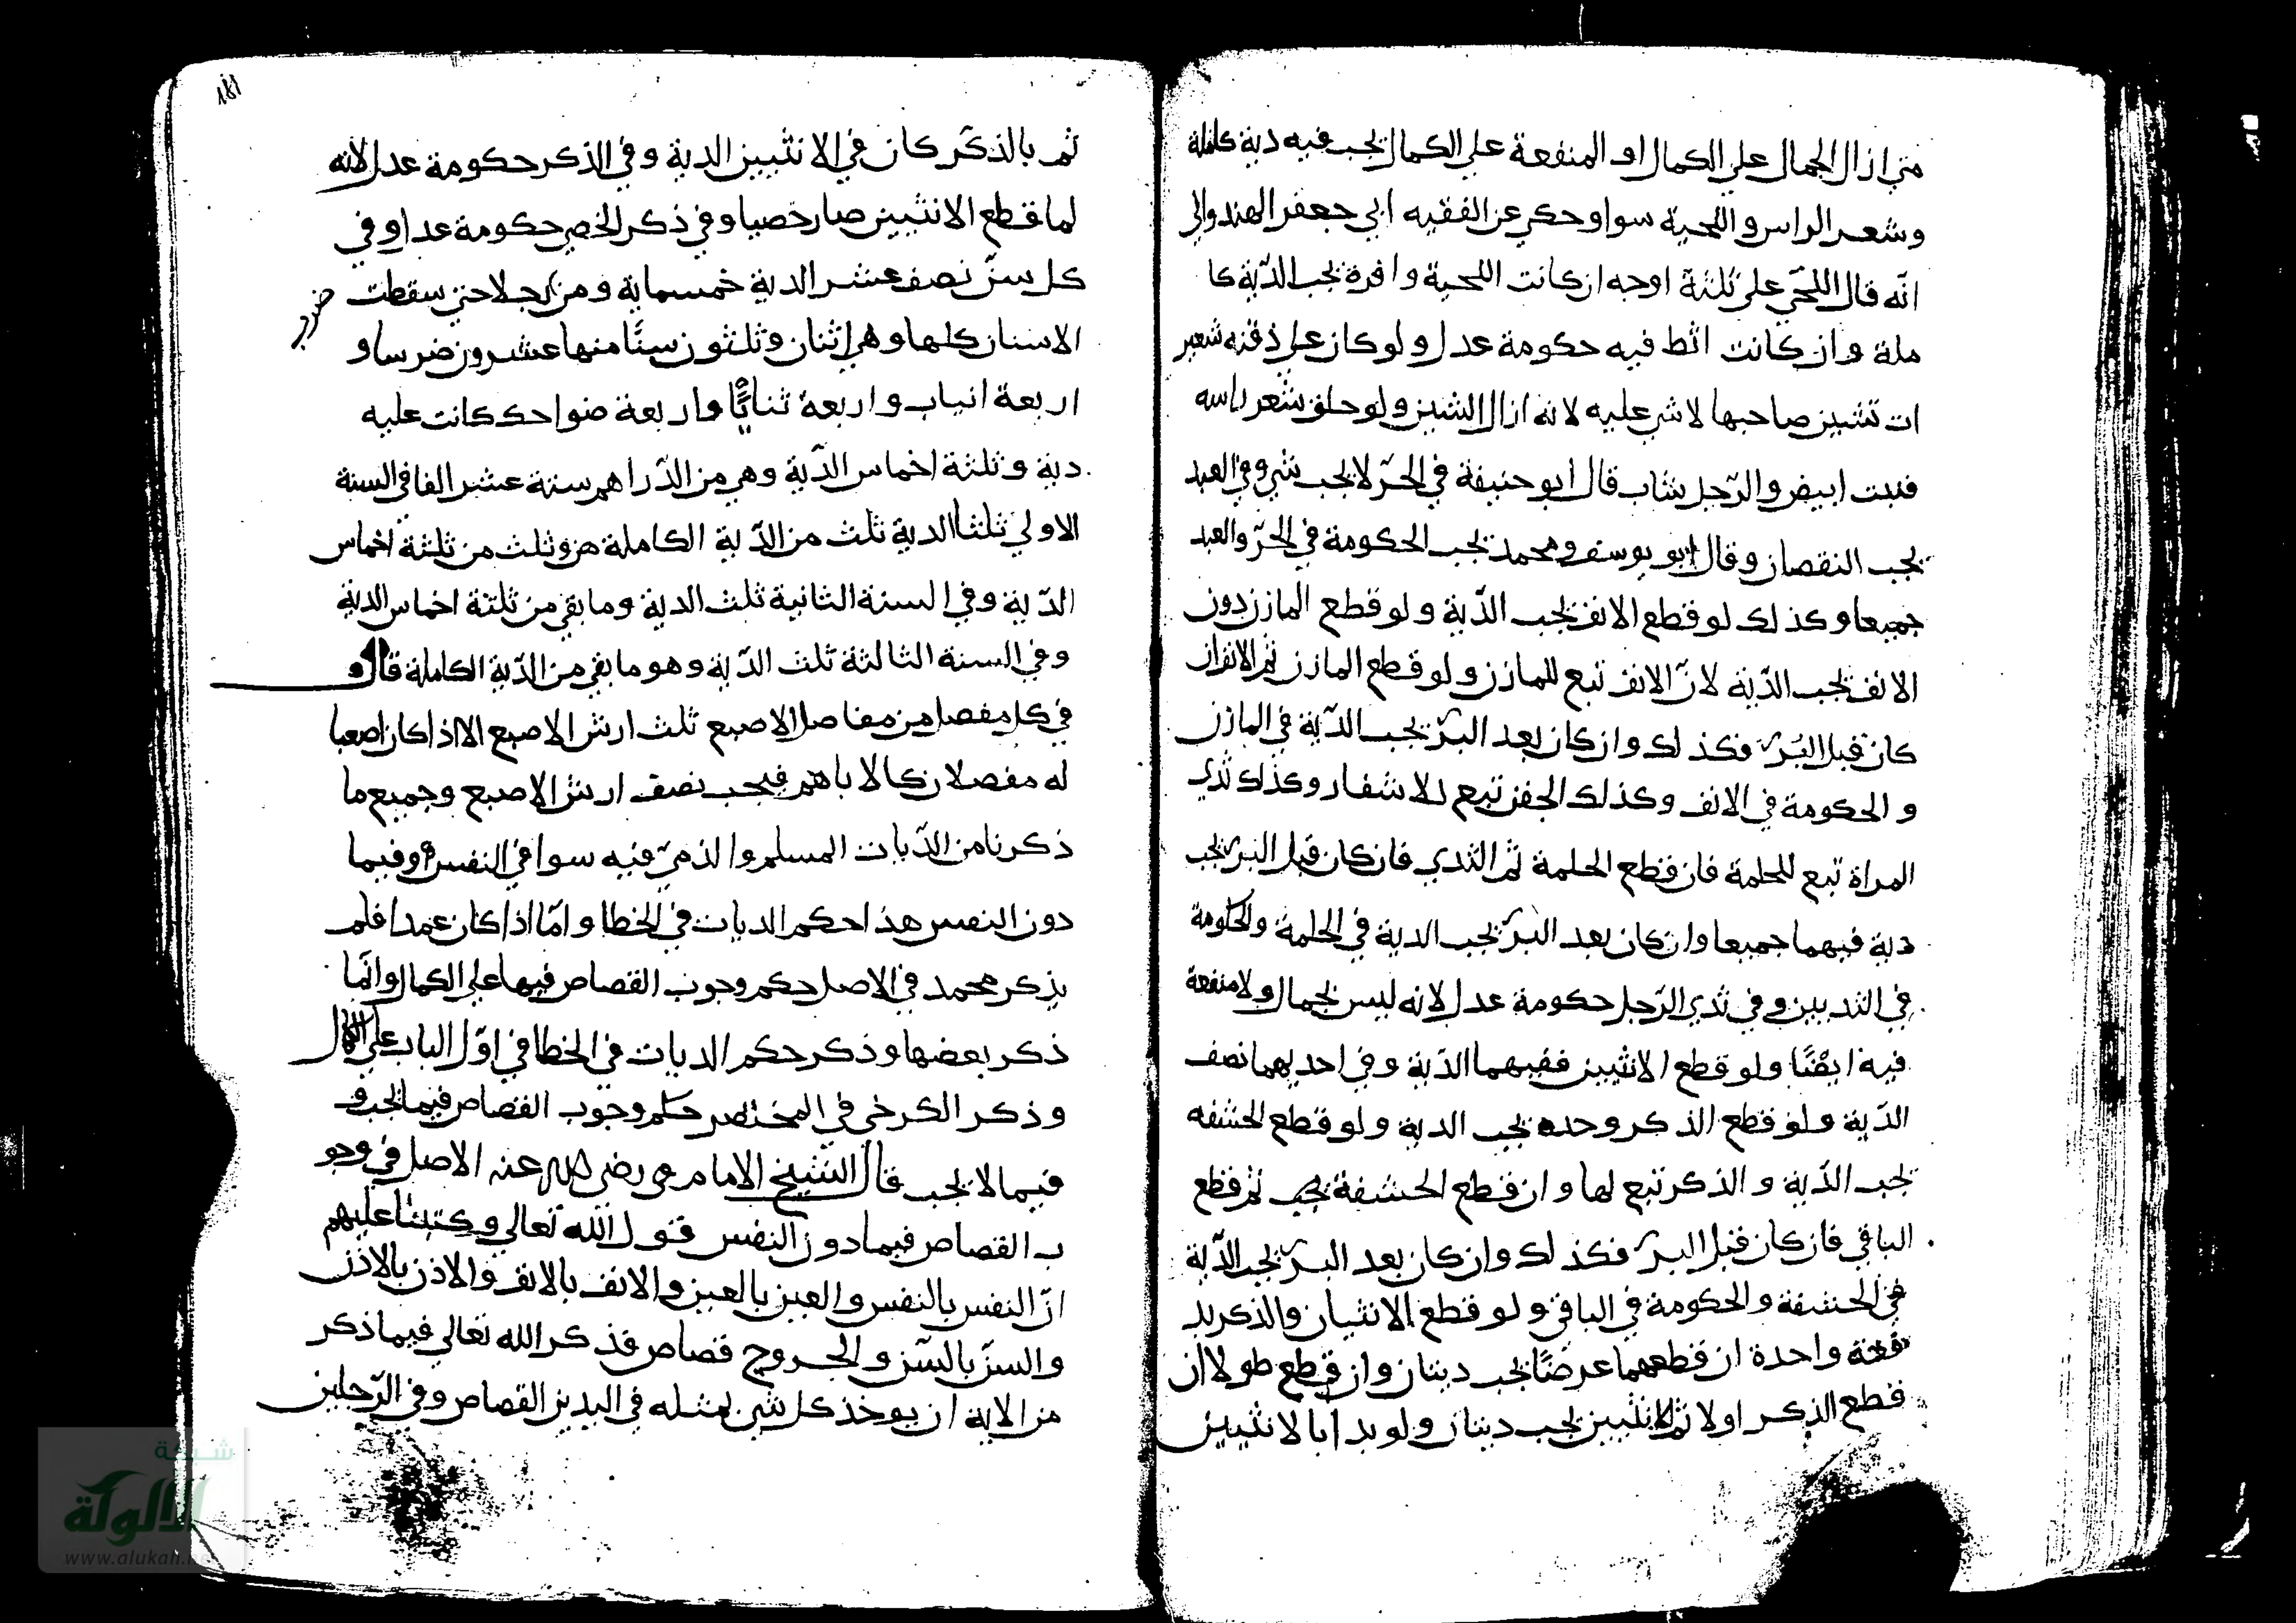 متى ازال الجمال على الكمال او المنفعة على الكمال يجب فيه دية كاملة
وشعر الراس و اللحية سوا وحكي عن الفقيه ابي جعفر الهندواني
انّه قال اللحى على ثلثة اوجه ان كانت اللحية وافرة يجب الدّية كا
ملة وان كانت اثط فيه حكومة عدل ولو كان على ذقنه شعير
ات تشين صاحبها لا شي عليه لانه ازال الشين ولو حلق شعر راسه
فنبت ابيض والرّجل شاب قال ابو حنيفة في الحرّ لا يجب شي وفي العبد
يجب النقصان وقال ابو يوسف ومحمد يجب الحكومة في الحرّ والعبد
جميعا وكذلك لو قطع الانف يجب الدّية ولو قطع المازن دون
الانف يجب الدّية لانّ الانف تبع للمازن ولو قطع المازن ثم الانف ان
كان قبل البرء فكذلك وان كان بعد البرء يجب الدّية في المازن
و الحكومة في الانف وكذلك الجفن تبع للاشفار وكذلك ثدي
المراة تبع للحلمة فان قطع الحلمة ثم الثدي فان كان قبل البرء يجب
دية فيهما جميعا وان كان بعد البرء يجب الدية في الحلمة والحكومة
في الثديين وفي ثدي الرّجل حكومة عدل لانه ليس بجمال ولا منفعة
فيه ايضًا ولو قطع الانثيين ففيهما الدّية وفي احديهما نصف
الدّية ولو قطع الذكر وحده يجب الدية ولو قطع الحشفه
يجب الدّية و الذكر تبع لها وان قطع الحشفة يجب ثم قطع
الباقي فان كان قبل البرء فكذلك وان كان بعد البرء يجب الدّية
في الحشفة والحكومة في الباقي ولو قطع الانثيان والذكر بد
فعة واحدة ان قطعهما عرضًا يجب ديتان وان قطع طولا ان
قطع الذكر اولا ثم الانثيين يجب ديتان ولو بدا بالانثيين
١٨١
ثم بالذكر كان في الانثيين الدية وفي الذكر حكومة عدل لانه
لما قطع الانثيين صار خصيا وفي ذكر الخصي حكومة عدل وفي
كل سنّ نصف عشر الدية خمسماية ومن رجلا حتى سقطت
ضرب
الاسنان كلها وهي اثنان وثلثون سنًّا منها عشرون ضرسا و
اربعة انياب واربعة ثنايًا واربعة ضواحك كانت عليه
دية وثلثة اخماس الدّية وهي من الدّراهم ستة عشر الفا في السنة
الاولى ثلثا الدية ثلث من الدّية الكاملة وثلث من ثلثة اخماس
الدّية وفي السنة الثانية ثلث الدية وما بقي من ثلثة اخماس الدية
وفي السنة الثالثة ثلث الدّية وهو ما بقي من الدّية الكاملة قال و
في كل مفصل من مفاصل الاصبع ثلث ارش الاصبع الا اذا كان اصبعا
له مفصلان كالاباهم فيجب نصف ارش الاصبع وجميع ما
ذكرنا من الدّيات المسلم والذميّ فيه سوا في النفس وفيما
دون النفس هذا حكم الديات في الخطا وامّا اذا كان عمدا فلم
يذكر محمد في الاصل حكم وجوب القصاص فيها على الكمال وانّما
ذكر بعضها وذكر حكم الديات في الخطا في اوّل الباب على الكمال
وذكر الكرخي في المختصر حكم وجوب القصاص فيما يجب و
فيما لا يجب قال الشيخ الامام رضي الله عنه الاصل في وجو
ب القصاص فيما دون النفس قول الله تعالى وكتبنا عليهم
انّ النفس بالنفس والعين بالعين والانف بالانف والاذن بالاذن
والسنّ بالسّن والجروح قصاص فذكر الله تعالى فيما ذكر
من الاية ان يوخذ كل شي بمثله في اليدين القصاص وفي الرّجلين
شبكة
الالوكة
www.alukah.net